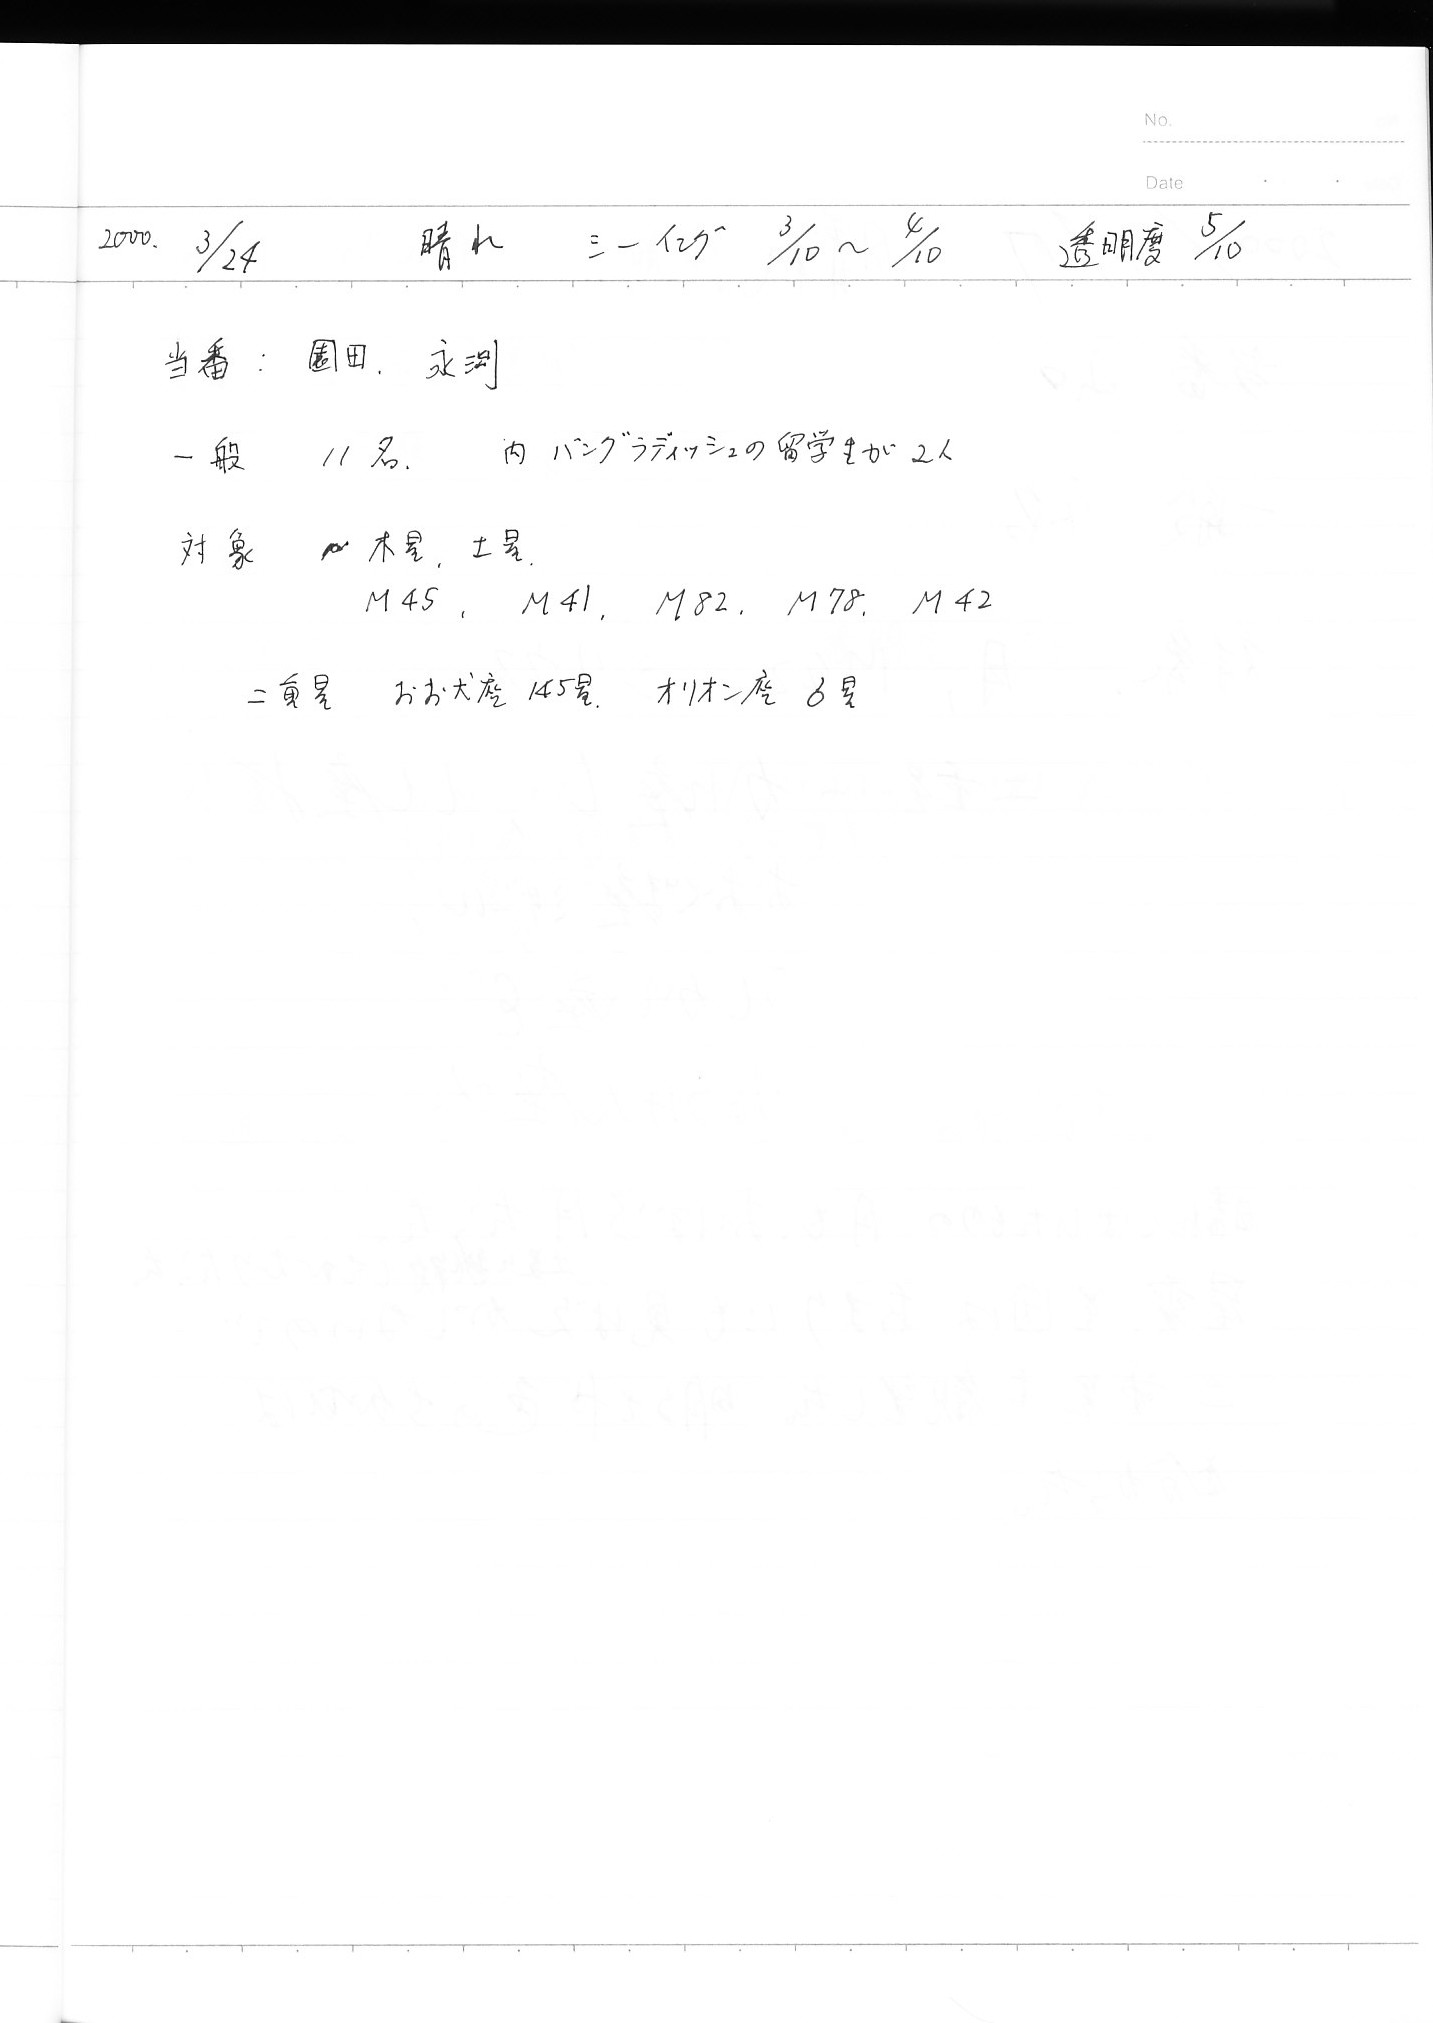 No.
Date
2000. 3/24 晴れ シーイング 3/10 ~ 4/10 透明度 5/10
当番: 園田. 永渕
一般 11名. 内 バングラディッシュの留学生が2人
対象 木星, 土星.
M45, M41, M82, M78, M42
二重星 おお犬座 145星. オリオン座 σ星